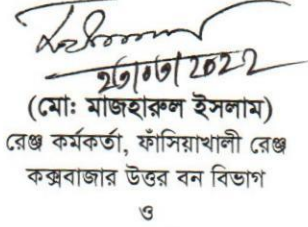 (মো: মাজহারুল ইসলাম)
রেঞ্জ কর্মকর্তা, ফাঁসিয়াখালী রেঞ্জ
কক্সবাজার উত্তর বন বিভাগ
ও